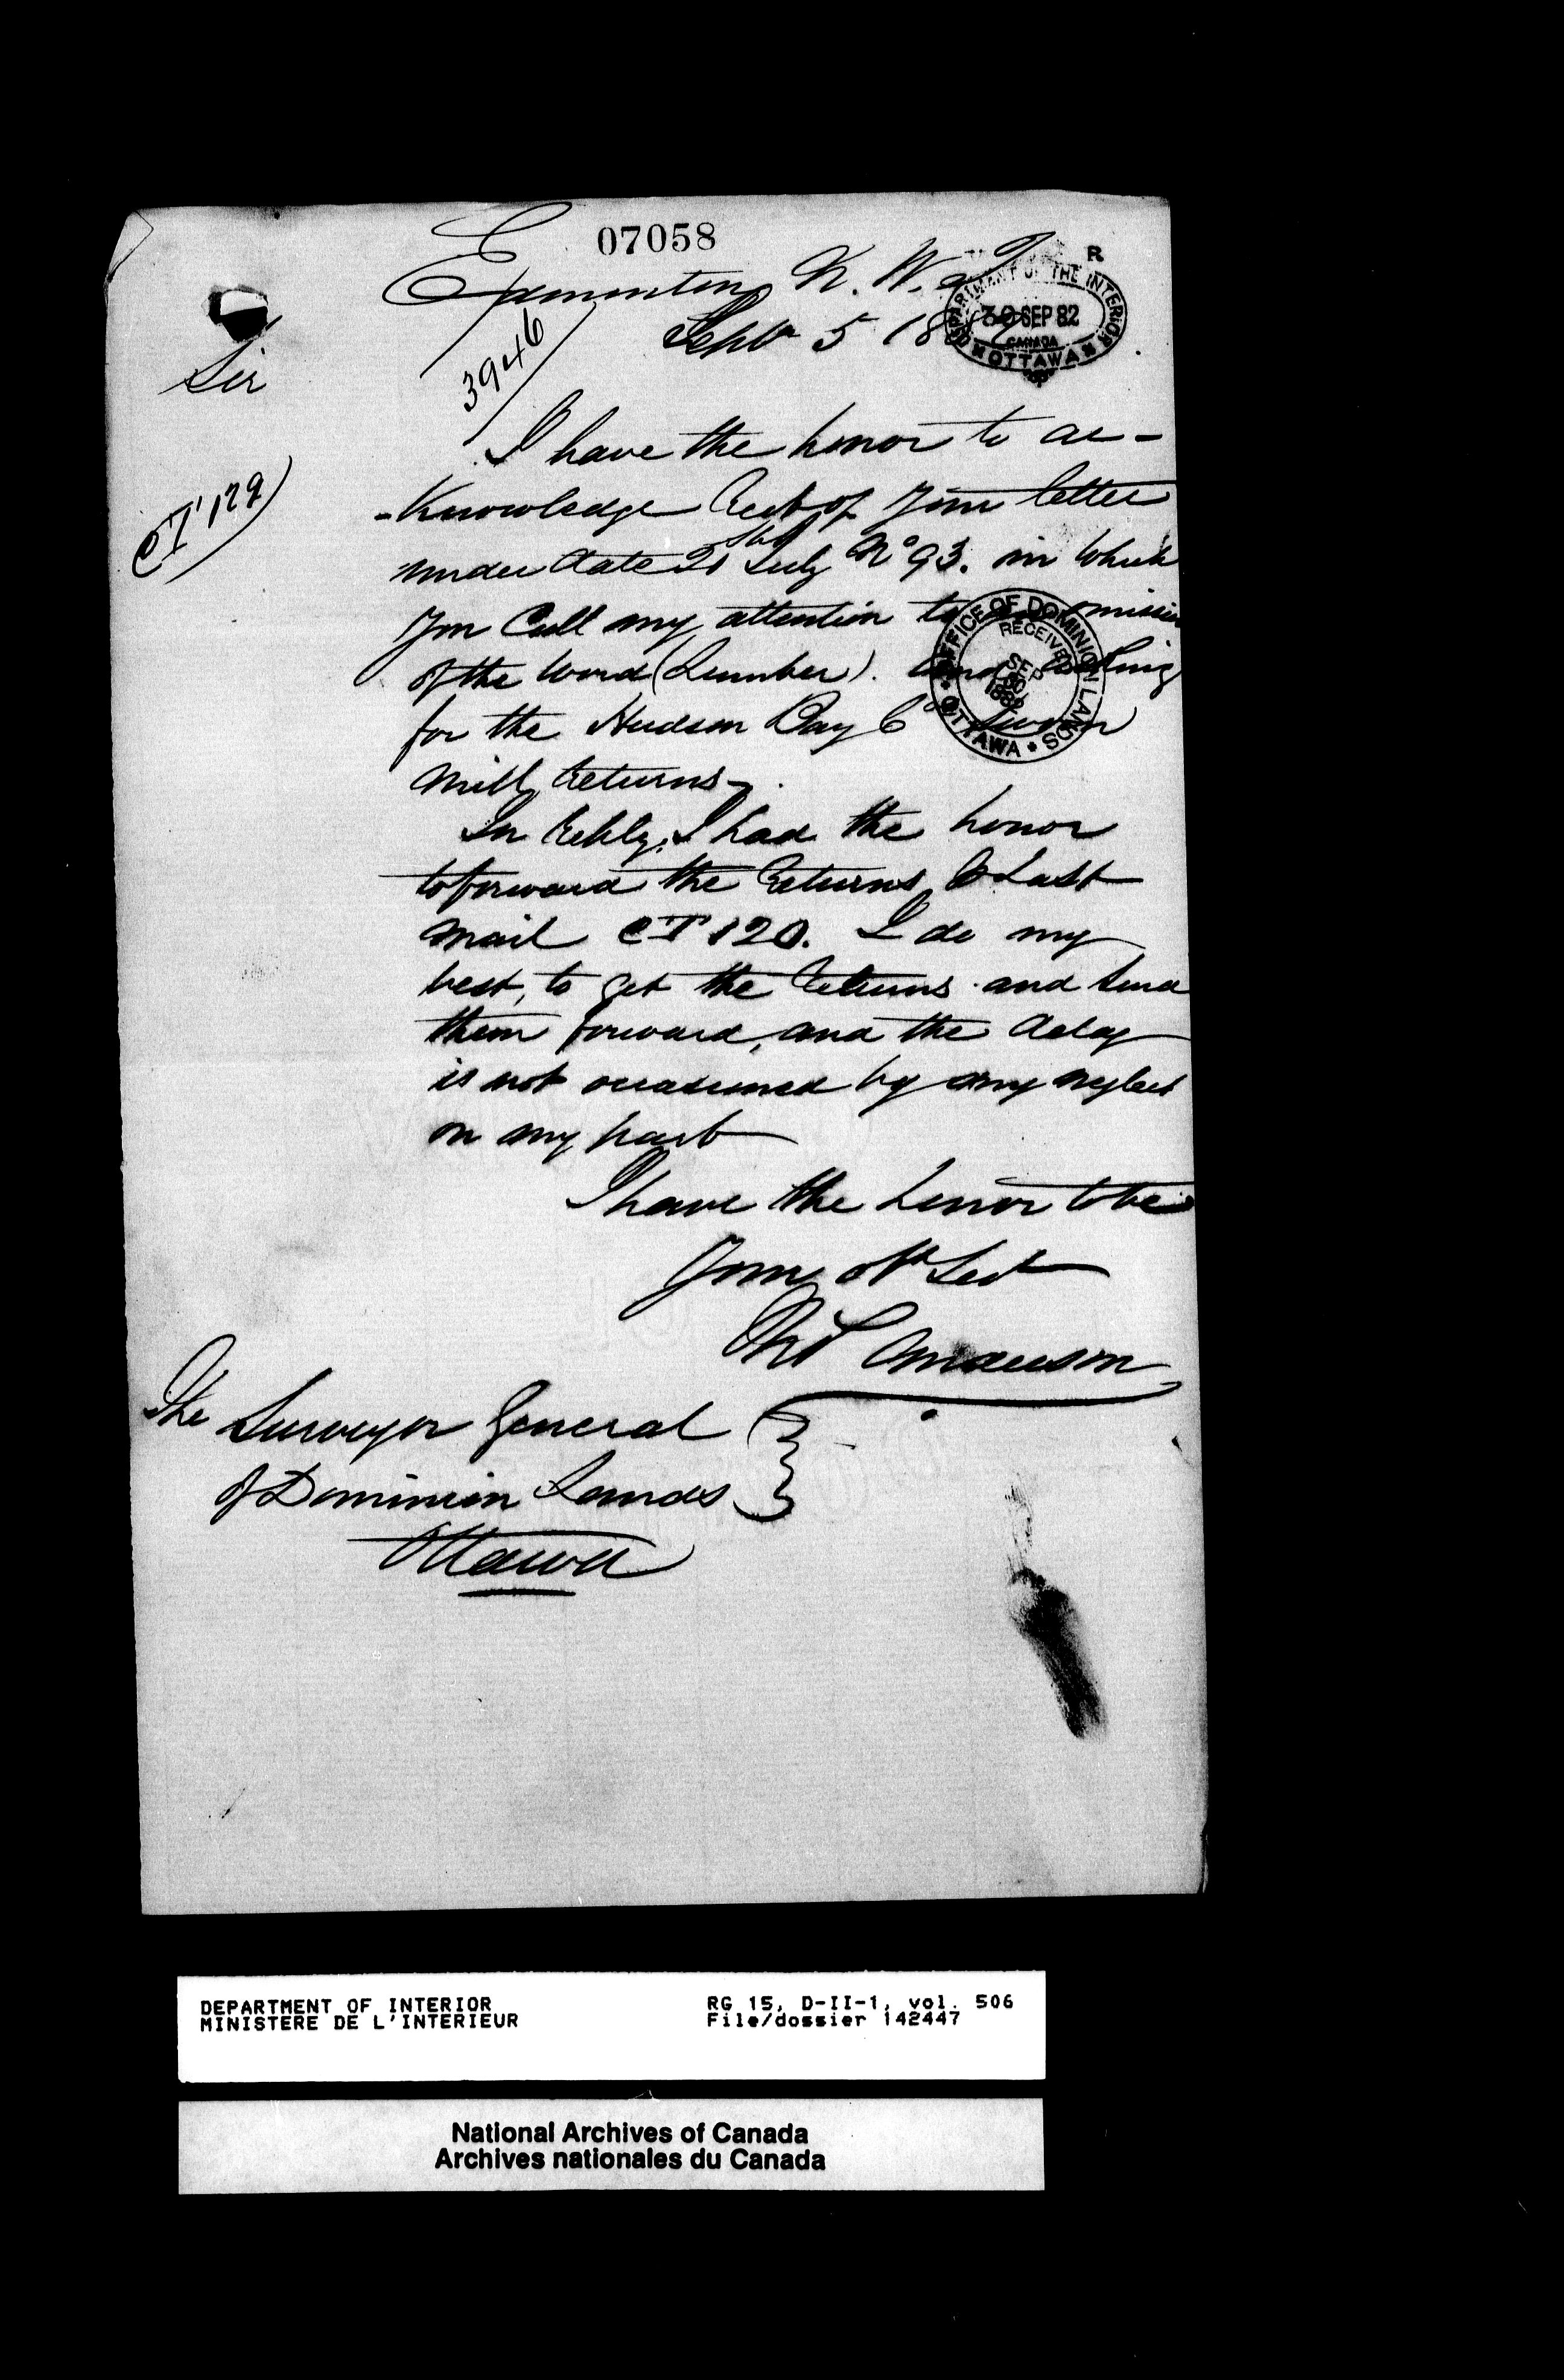 07058
Edmonton N. W. T
Sept 5 1882
DEPARTMENT OF THE INTERIOR
R
30 SEP 82
CANADA
OTTAWA
3946
Sir
CT 129
I have the honor to ac-
-Knowledge Rect of your letter
under date 21st July No 93. in which
you Call my attention to omission
of the word (Lumber). and asking
for the Hudson Bay Co Sworn
mill returns.
OFFICE OF DOMINION LANDS
RECEIVED
SEP
30
1882
OTTAWA
In reply, I had the honor
to forward the Returns Last
mail CT 120. I do my
best, to get the Returns and send
them forward, and the delay
is not occasioned by any neglect
on my part
I have the honor to be
Your Obt Svt
Anderson
The Surveyor General
of Dominion Lands
Ottawa
DEPARTMENT OF INTERIOR RG 15, D-II-1, vol. 506
MINISTERE DE L'INTERIEUR File/dossier 142447
National Archives of Canada
Archives nationales du Canada